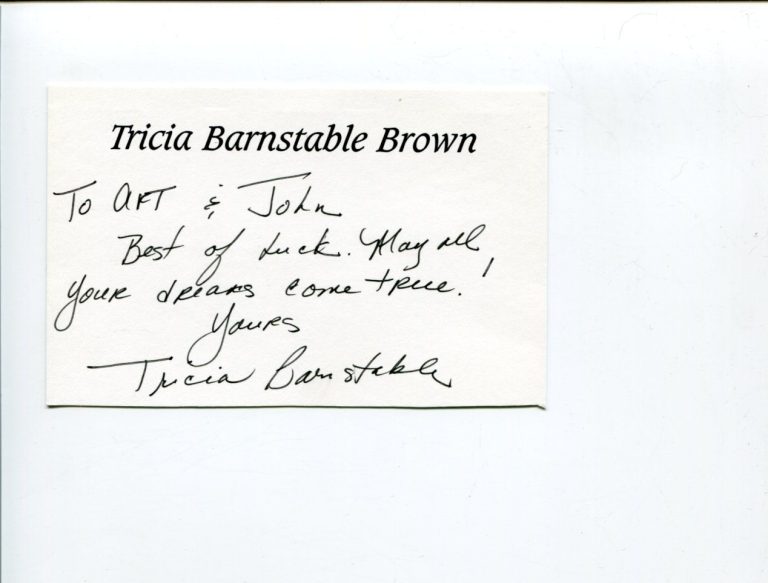 Tricia Barnstable Brown
To Art & John
Best of Luck. May all
your dreams come true!
Yours
Tricia Barnstable